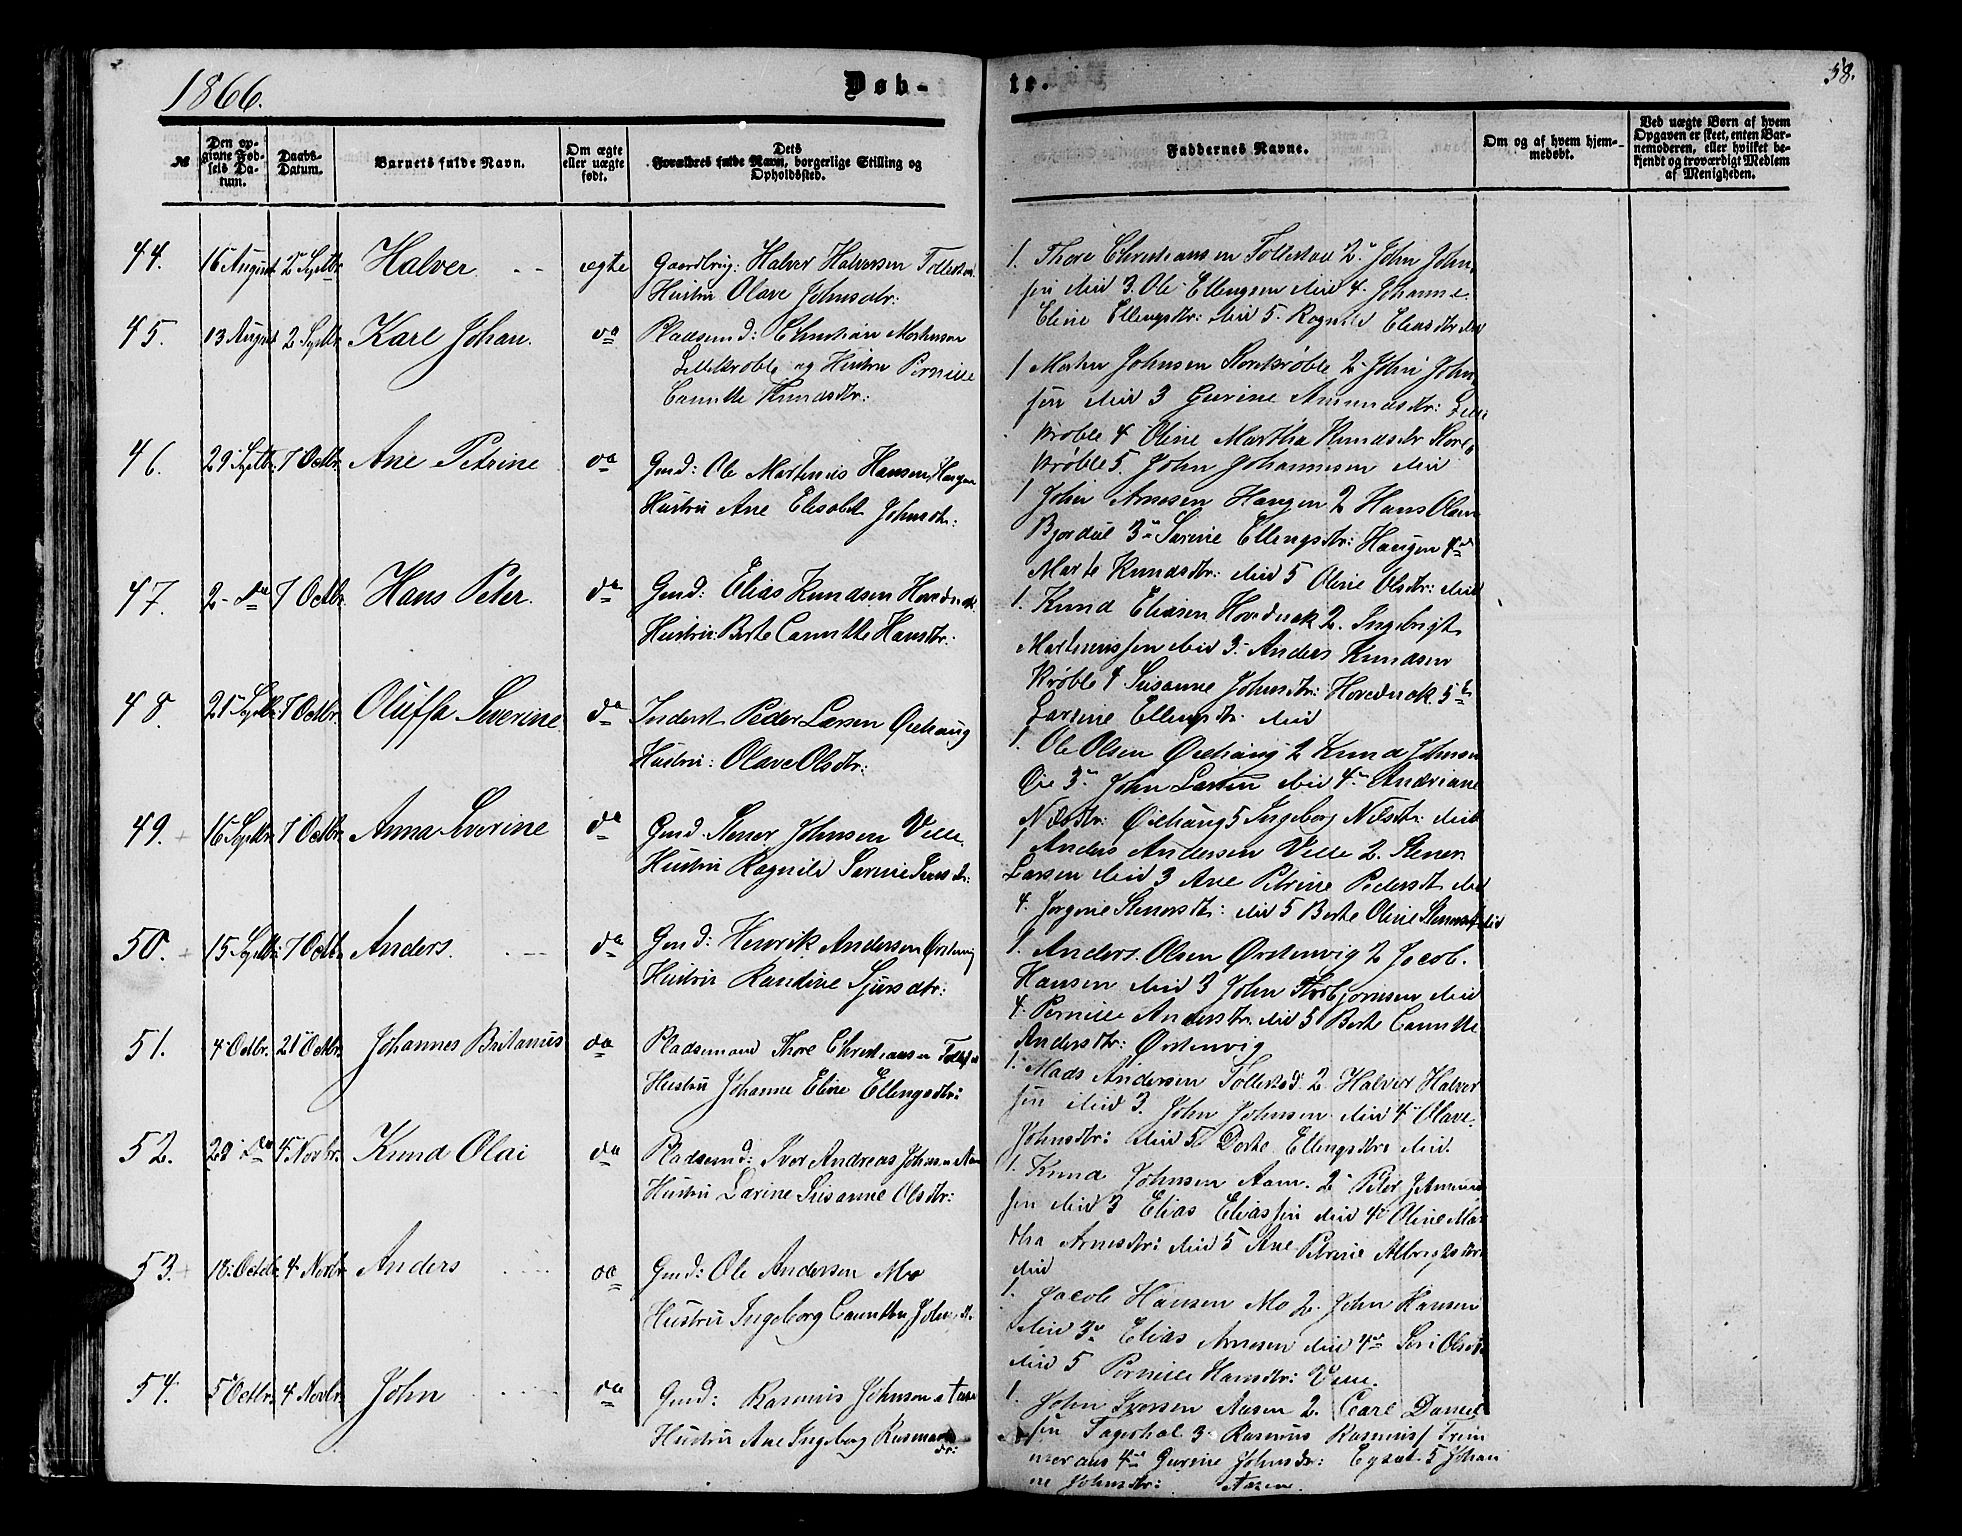 1866.
Døb-
te.
58.
№
Den opgivne Fødsels Datum.
Daabs-Datum.
Barnets fulde Navn.
Om ægte eller uægte født.
Dets Forældres fulde Navn, borgerlige Stilling og Opholdssted.
Faddernes Navne.
Om og af hvem hjemmedøbt.
Ved uægte Børn af hvem Opgaven er skeet, enten Barnemoderen, eller hvilket bekjendt og troværdigt Medlem af Menigheden.
44. 16 August 2 Septbr Halver ægte Gaardbrug: Halver Halversen
Hustru Olave Johnsdtr:
1. Thore Christiansen Tollestad 2. John John-
sen ibid 3. Ole Ellengsen ibid 4. Johanne
Eline Ellengsdtr: ibid 5. Rognild Eliasdtr ibid
45. 13 August 2 Septbr Karl Johan. do Pladsemd: Christian Mortensen
Lillekrøble og Hustru Pernille
Camilla Knudsdtr:
1 Morten Johnsen Storekrøble 2 John John-
sen ibid 3 Gurine Amundsdtr: Lille
krøble 4 Oline Martha Knudsdtr Store
krøble 5. John Johannesen ibid
46. 29 Septbr 7 Octbr Ane Petrine do Gmd: Ole Martinus Hansen Haugen
Hustru Ane Elisabet Johnsdtr:
1 John Arnesen Haugen 2 Hans Olsen
Bjerdal 3 Sarine Ellengsdtr: Haugen 4
Marte Knudsdtr: ibid 5 Oline Olsdtr: ibid
47. 2 do 7 Octbr Hans Peter. do Gmd: Elias Knudsen Hovednak
Hustru: Berte Camilla Hansdtr:
1. Knud Eliasen Hovednak 2. Ingebrigt
Martinussen ibid 3 Anders Knudsen
Krøble 4 Susanne Johnsdtr: Hovednak 5
Larsine Ellengsdtr ibid
48. 21 Septbr 7 Octbr Oluffa Severine do Inderst Peder Larsen Øiehaug
Hustru: Olave Olsdtr:
1. Ole Olsen Øiehaug 2 Knud Johnsen
Øie 3 John Larsen ibid 4 Andriane
Nilsdtr: Øiehaug 5 Ingeborg Nilsdtr: ibid
49. 16 Septbr 7 Octbr Anna Severine do Gmd. Stener Johnsen Velle
Hustru Ragnild Sarine
1 Anders Andersen Velle 2. Stener
Larsen ibid 3 Ane Petrine Pedersdt ibid
4. Jørgine Stenersdtr: ibid 5 Berte Oline Stenersdtr ibid
50. 15 Septbr 7 Octbr Anders. do Gmd: Henrik Andersen Ørstenvig
Hustru Randine Sjursdtr:
1. Anders Olsen Ørstenvig 2 Jacob
Hansen ibid 3 John Thorbjørnsen ibid
4. Pernille Andersdtr ibid 5 Berte Camilla
Andersdtr: Ørstenvig
51. 4 Octbr. 21 Octbr Johannes Britanus do Pladsemand Thore Christiansen
Hustru Johanne Eline Ellengsdtr:
1. Mads Andersen Tollestad: 2 Halver Halver
sen ibid 3. John Johnsen ibid 4 Olave
Johnsdtr: ibid 5 Dorte Ellengsdtr ibid.
52. 28 do 4 Novbr. Knud Olai do Pladsemd: Iver Andreas Johnsen Aam
Hustru Larine Susanne Olsdtr:
1. Knud Johnsen Aam. 2 Peter
sen ibid 3 Elias Eliassen ibid 4 Oline Mar-
tha Arnesdtr: ibid 5 Ane Petrine Albrigtsdtr
ibid
53. 18 Octbr. 4 Novbr. Anders do Gmd: Ole Andersen Mo
Hustru Ingeborg
1. Jacob Hansen Mo 2. John Hansen
ibid 3 Elias Arnesen ibid 4 Siri Olsdtr
ibid 5 Pernille Hansdtr: Velle.
54. 5 Octbr. 4 Novbr. John do Gmd: Rasmus Johnsen Aasen
Hustru Ane Ingeborg Rasmus
dr:
1. John Iversen Aasen 2. Carl Daniel
sen 3 Rasmus Rasmuss
4 Gurine Johnsdtr: Egset 5 Johan
ne Johnsdtr: Aasen.